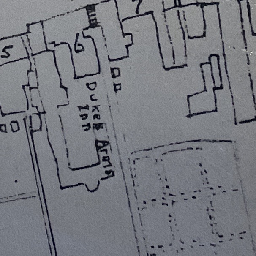 7
5
6
Dukes Arms
Inn